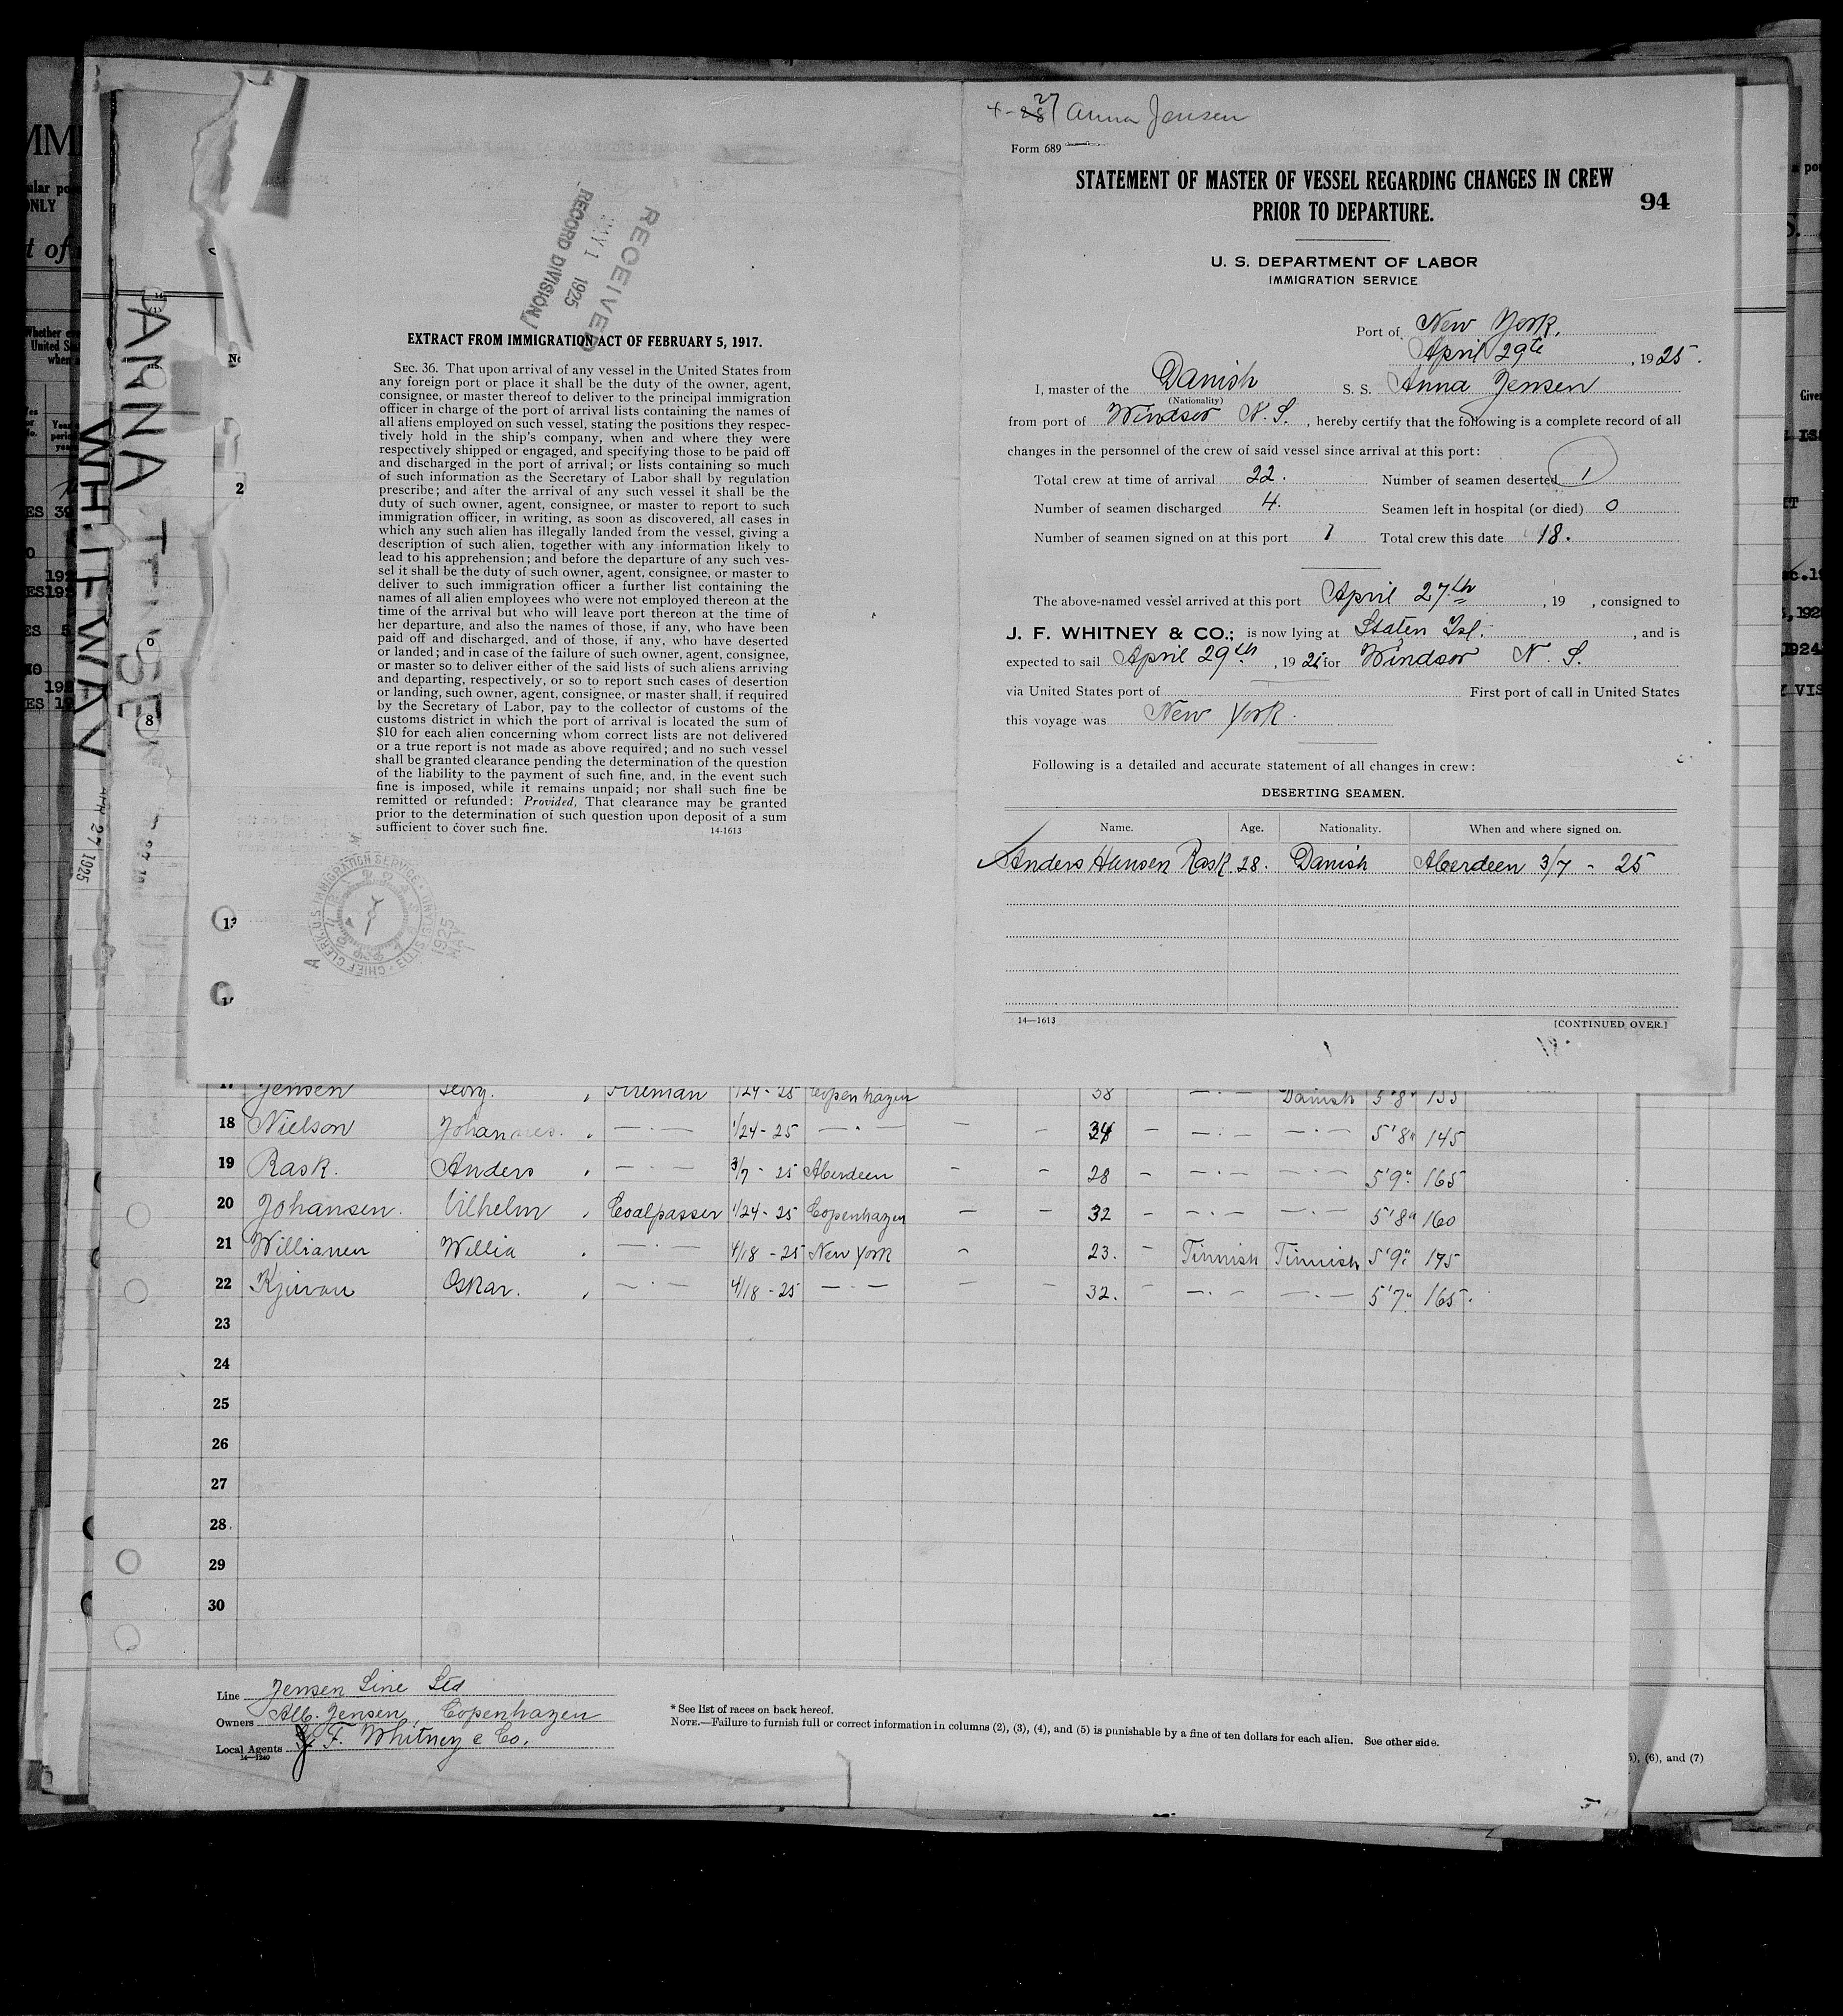 4-27 Anna Jensen
Form 689
STATEMENT OF MASTER OF VESSEL REGARDING CHANGES IN CREW
PRIOR TO DEPARTURE.
94
U. S. DEPARTMENT OF LABOR
IMMIGRATION SERVICE
Port of New York,
April 29th, 1925.
I, master of the Danish S. S. Anna Jensen
(Nationality)
from port of Windsor N. S., hereby certify that the following is a complete record of all
changes in the personnel of the crew of said vessel since arrival at this port:
Total crew at time of arrival 22. Number of seamen deserted 1
Number of seamen discharged 4. Seamen left in hospital (or died) 0
Number of seamen signed on at this port 1 Total crew this date 18.
The above-named vessel arrived at this port April 27th, 19 , consigned to
J. F. WHITNEY & CO.; is now lying at Staten Isl., and is
expected to sail April 29th, 1925 for Windsor N. S.
via United States port of First port of call in United States
this voyage was New York.
Following is a detailed and accurate statement of all changes in crew:
DESERTING SEAMEN.
Name. Age. Nationality. When and where signed on.
Anders Hansen Rask 28. Danish Aberdeen 3/7 - 25
14—1613
[CONTINUED OVER.]
RECEIVED
MAY 1 1925
RECORD DIVISION
EXTRACT FROM IMMIGRATION ACT OF FEBRUARY 5, 1917.
SEC. 36. That upon arrival of any vessel in the United States from
any foreign port or place it shall be the duty of the owner, agent,
consignee, or master thereof to deliver to the principal immigration
officer in charge of the port of arrival lists containing the names of
all aliens employed on such vessel, stating the positions they respec-
tively hold in the ship's company, when and where they were
respectively shipped or engaged, and specifying those to be paid off
and discharged in the port of arrival; or lists containing so much
of such information as the Secretary of Labor shall by regulation
prescribe; and after the arrival of any such vessel it shall be the
duty of such owner, agent, consignee, or master to report to such
immigration officer, in writing, as soon as discovered, all cases in
which any such alien has illegally landed from the vessel, giving a
description of such alien, together with any information likely to
lead to his apprehension; and before the departure of any such ves-
sel it shall be the duty of such owner, agent, consignee, or master to
deliver to such immigration officer a further list containing the
names of all alien employees who were not employed thereon at the
time of the arrival but who will leave port thereon at the time of
her departure, and also the names of those, if any, who have been
paid off and discharged, and of those, if any, who have deserted
or landed; and in case of the failure of such owner, agent, consignee,
or master so to deliver either of the said lists of such aliens arriving
and departing, respectively, or so to report such cases of desertion
or landing, such owner, agent, consignee, or master shall, if required
by the Secretary of Labor, pay to the collector of customs of the
customs district in which the port of arrival is located the sum of
$10 for each alien concerning whom correct lists are not delivered
or a true report is not made as above required; and no such vessel
shall be granted clearance pending the determination of the question
of the liability to the payment of such fine, and, in the event such
fine is imposed, while it remains unpaid; nor shall such fine be
remitted or refunded: Provided, That clearance may be granted
prior to the determination of such question upon deposit of a sum
sufficient to cover such fine.
14-1613
CHIEF CLERK, U.S. IMMIGRATION SERVICE · ELLIS ISLAND
1925
ANNA
WHITEWAY
APR 27 1925
17 Jensen Georg. Fireman 1/24 - 25 Copenhagen 38 Danish 5'8" 155
18 Nielson Johannes. — · — 1/24 - 25 — · — — - 34 - — · — — · — 5'8" 145
19 Rask. Anders — · — 3/7 - 25 Aberdeen - - 28 - — · — — · — 5'9" 165
20 Johansen. Vilhelm Coalpasser 1/24 - 25 Copenhagen — — 32 - — · — — · — 5'8" 160
21 Willianen Willia — · — 4/18 - 25 New York - 23. - Finnish Finnish 5'9" 175
22 Oskar. — · — 4/18 - 25 — · — — — 32. - — · — — · — 5'7" 165.
23
24
25
26
27
28
29
30
Line Jensen Line Ltd
Owners Alb. Jensen, Copenhagen
Local Agents J. F. Whitney & Co.
14—1240
* See list of races on back hereof.
NOTE.—Failure to furnish full or correct information in columns (2), (3), (4), and (5) is punishable by a fine of ten dollars for each alien. See other side.
(6), and (7)